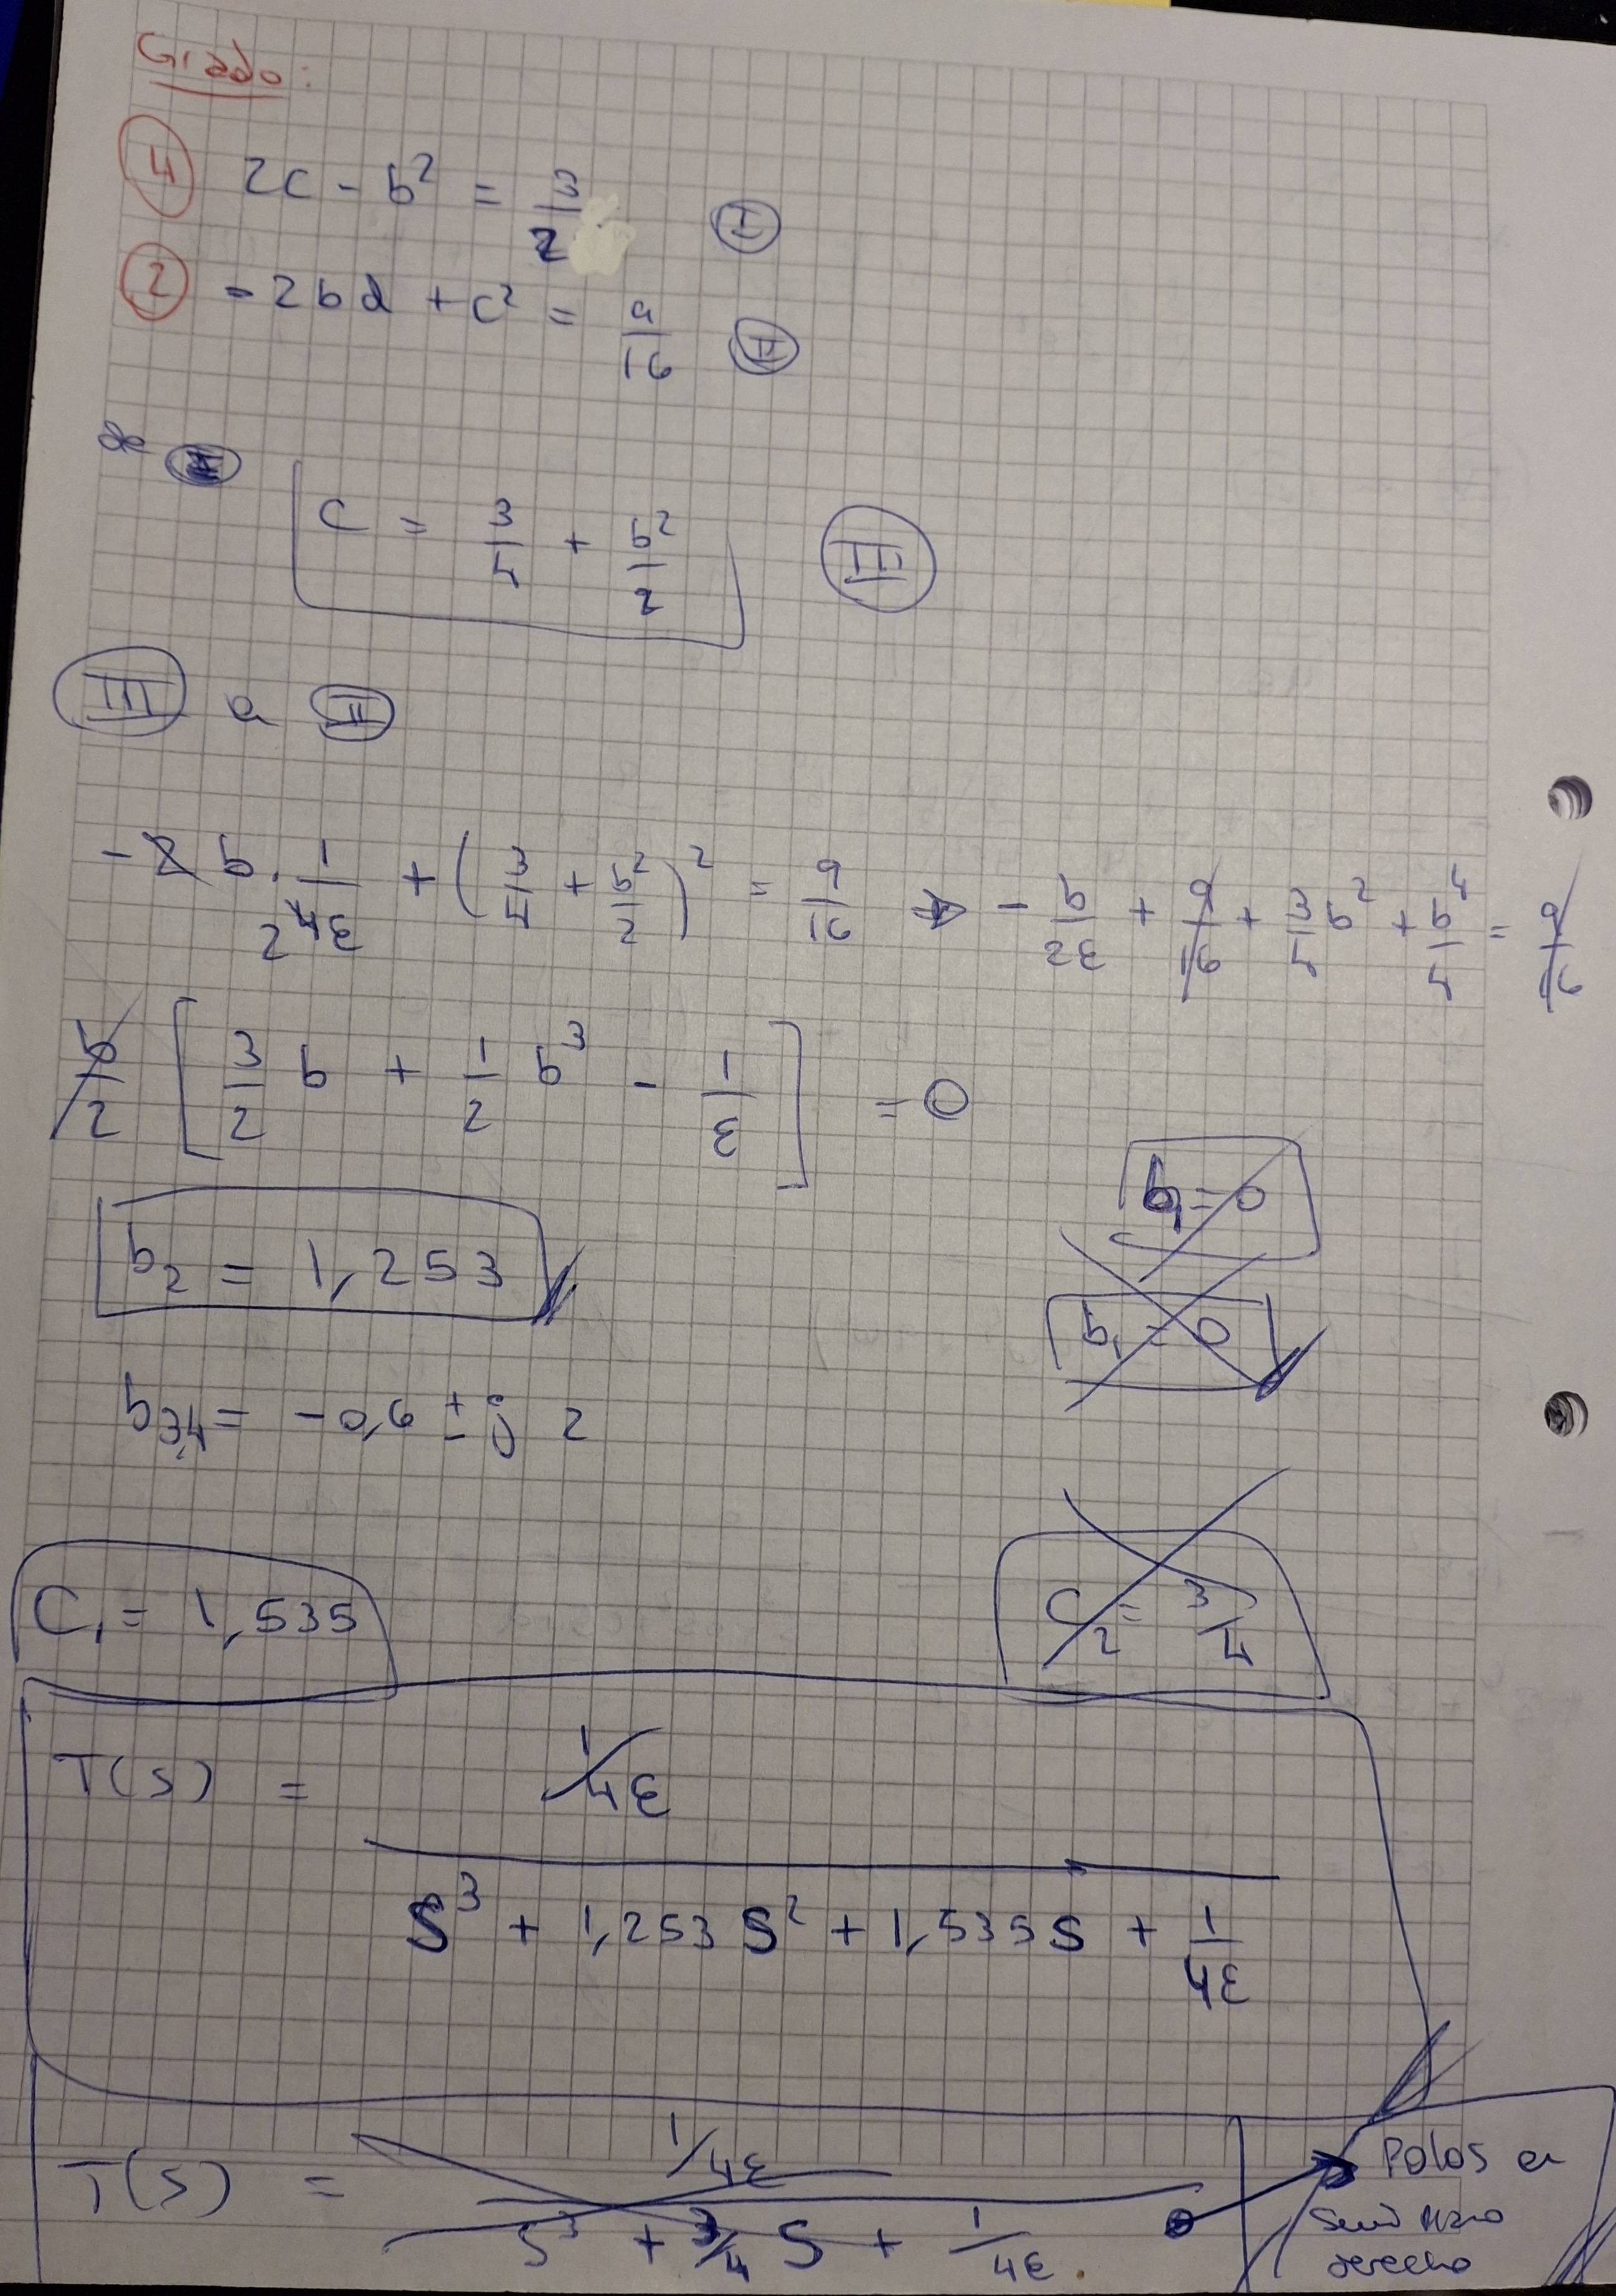 Grado:
④ 2c - b² = 3/2 Ⓘ
② -2bd + c² = 9/16 Ⓘ Ⓘ
de Ⓘ
c = 3/4 + b²/2 ⒾⒾⒾ
III a II
-2 b · 1/(4ε) 2 + (3/4 + b²/2)² = 9/16 ⇒ -b/(2ε) + 9/16 + 3/4 b² + b⁴/4 = 9/16
b/2 [3/2 b + 1/2 b³ - 1/ε] = 0
b₁ = 0
b₂ = 1,253
b₁ = 0
b₃,₄ = -0,6 ± j 2
C₁ = 1,535
C₂ = 3/4
T(s) = (1/4ε) / (S³ + 1,253 S² + 1,535 S + 1/4ε)
T(s) = (1/4ε) / (S³ + 3/4 S + 1/4ε)
Polos en
semi plano
derecho